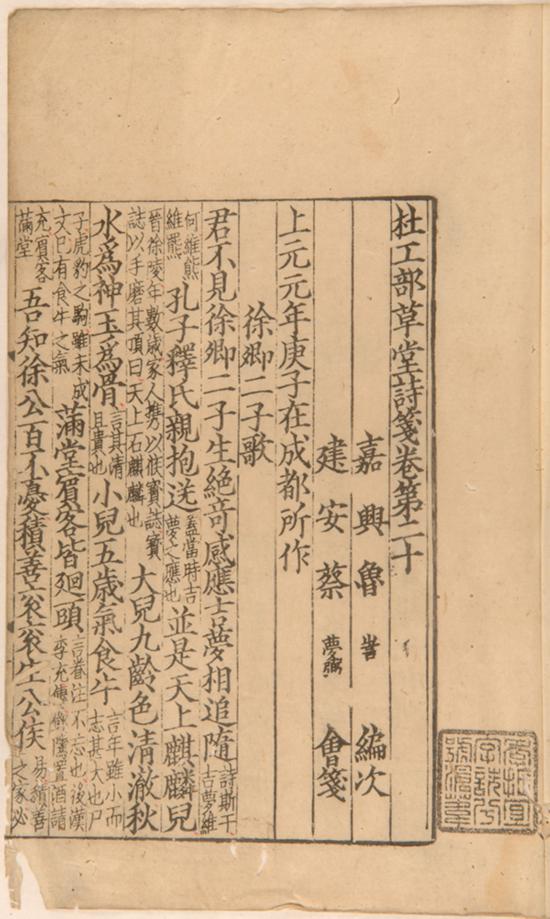 杜工部草堂詩箋卷第二十
嘉興魯 訔 編次
建安蔡 夢弼 會箋
上元元年庚子在成都所作
徐卿二子歌
君不見徐卿二子生絕奇感應吉夢相追隨詩斯干吉夢維
何維熊維羆孔子釋氏親抱送蓋當時吉夢之應也並是天上麒麟兒
晉徐陵年數歲家人携以候寶誌寶誌以手磨其頂曰天上石麒麟也大兒九齡色清澈秋
水爲神玉爲骨言其清且貴也小兒五歲氣食牛言年雖小而志其大也尸
子虎豹之駒雖未成文已有食牛之氣滿堂賓客皆廻頭言眷注不忘也後漢李充傳 置酒請
充賓客滿堂吾知徐公百不憂積善衮衮生公侯易積善之家必